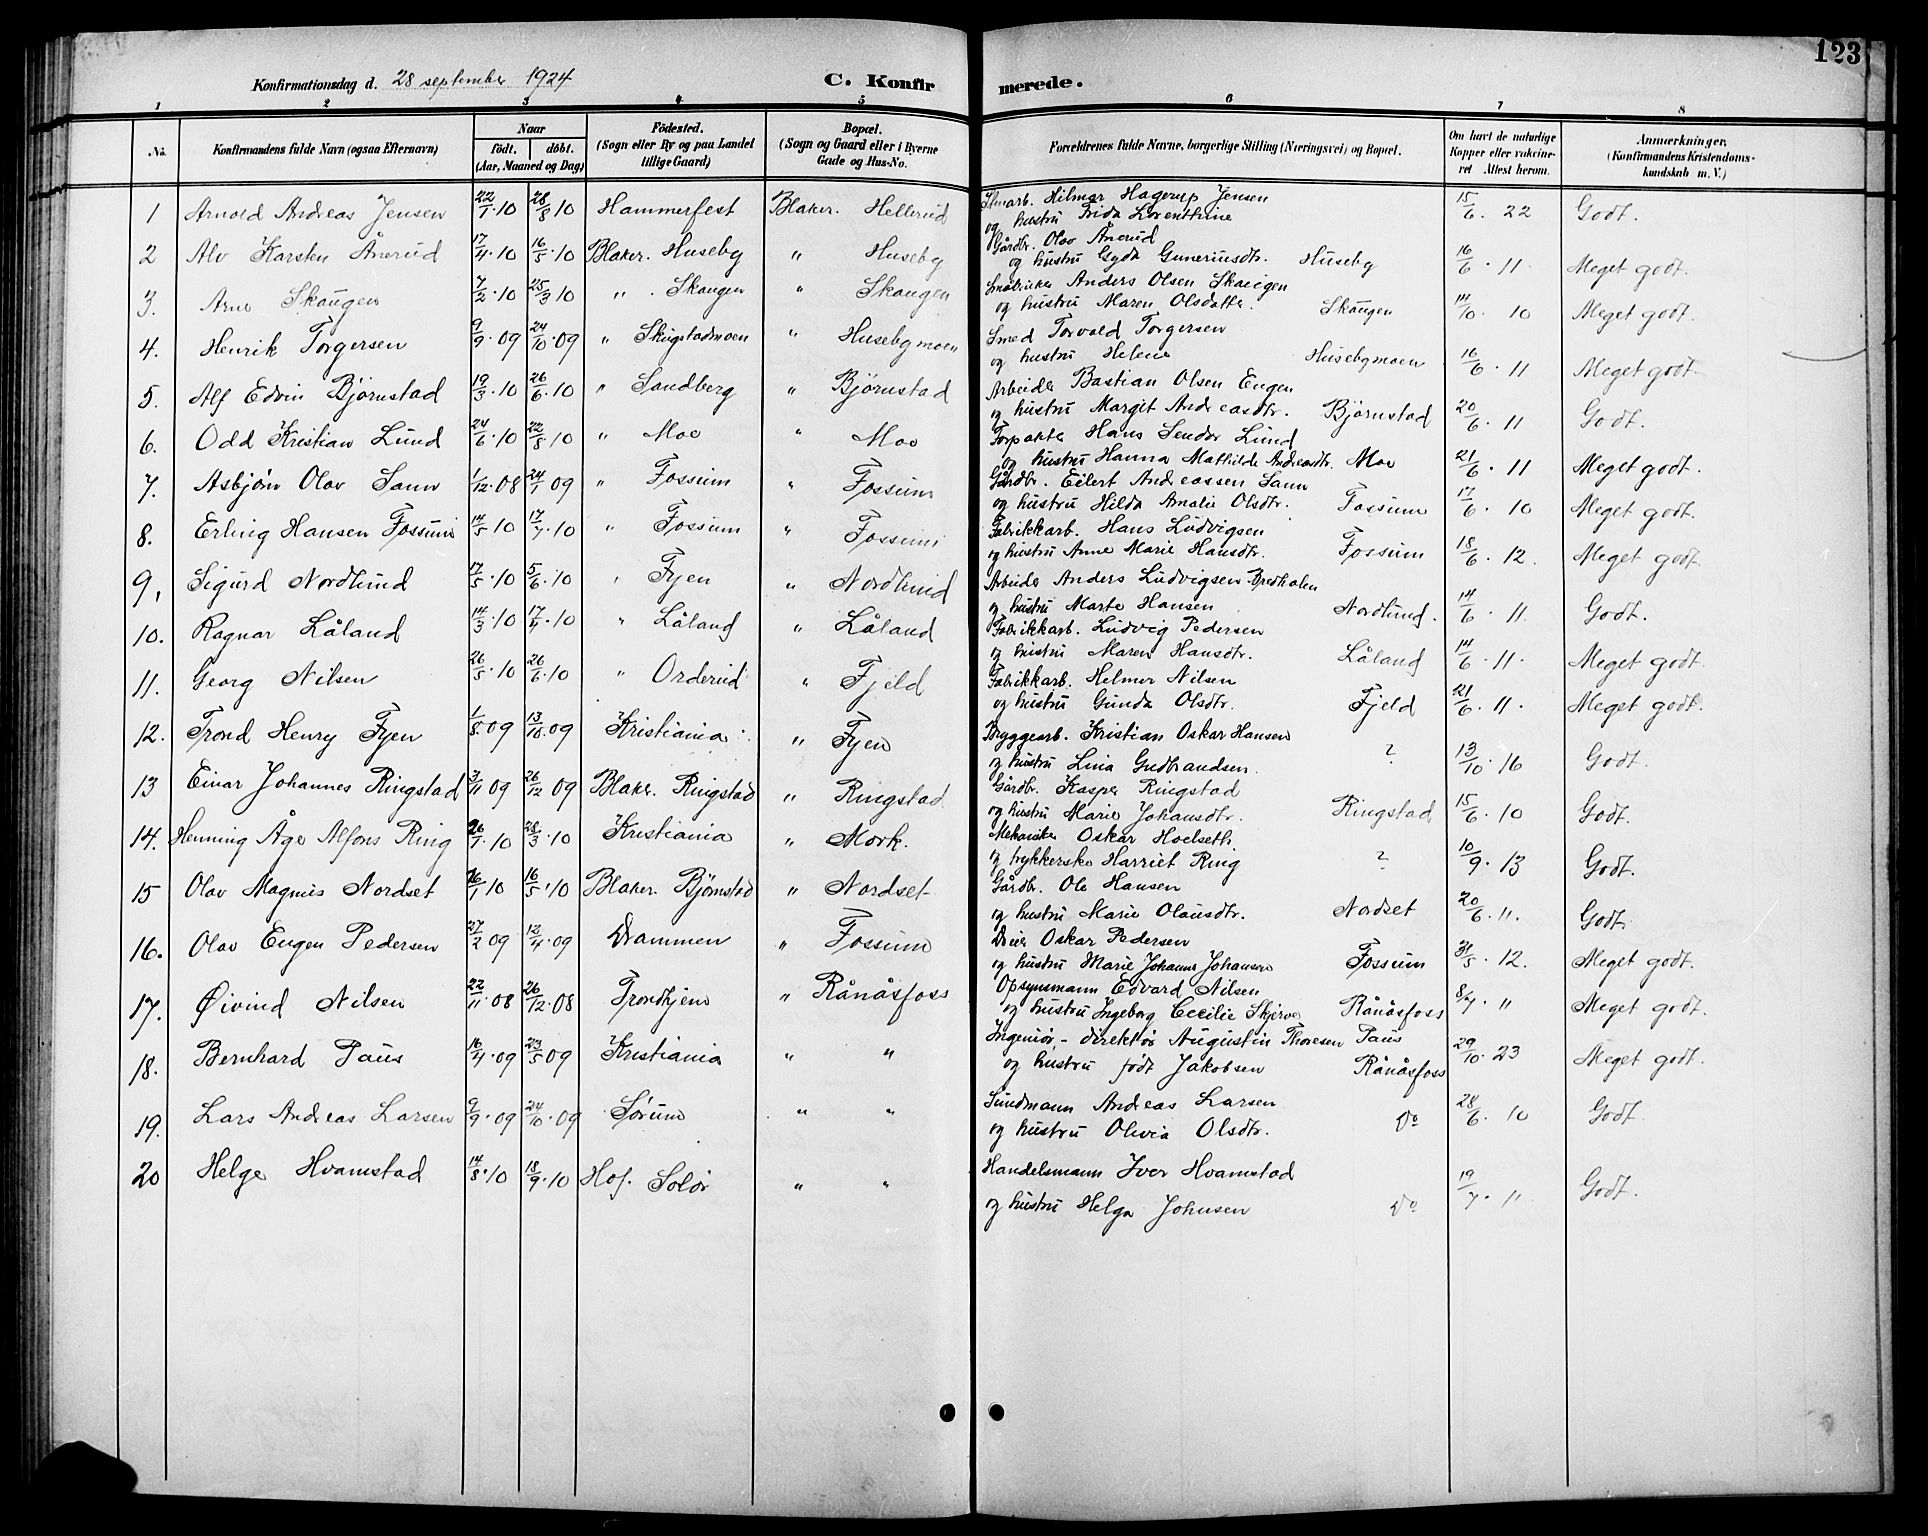 123
Konfirmationsdag d. 28 september 1924 C. Konfirmerede.
1 2 3 4 5 6 7 8
No. Konfirmandens fulde Navn (ogsaa Efternavn) Naar födt. döbt. (Aar, Maaned og Dag) Födested. (Sogn eller By og paa Landet tillige Gaard) Bopæl. (Sogn og Gaard eller i Byerne Gade og Hus-No. Forældrenes fulde Navne, borgerlige Stilling (Næringsvei) og Bopæl. Om havt de naturlige Kopper eller vaccineret Attest herom. Anmærkninger. (Konfirmandens Kristendomskundskab m. V.)
1 Arnold Andreas Jensen 22/1 10 28/8 10 Hammerfest Blaker. Hellerud Hilmar Hagerup Jensen 15/6. 22 Godt.
og hustru Frida Lorenthine
2 Alv Karsten Ånerud 17/4. 10 16/5. 10 Blaker. Huseby " Huseby Gårdbr. Olav Ånerud
og hustru Gyda Guneriusdtr. Huseby 16/6. 11 Meget godt.
3. Arne Skaugen 7/2. 10 25/3 10 " Skaugen " Skaugen Småbruker Anders Olsen Skaugen
og hustru Maren Olsdatter. Skaugen 14/10. 10 Meget godt.
4. Henrik Torgersen 9/9. 09 24/10. 09 " Skugstadmoen " Husebymoen Smed Torvald Torgersen
og hustru Helene Husebymoen 16/6. 11 Meget godt.
5. Alf Edvin Björnstad 19/3. 10 26/6. 10 " Sandberg " Björnstad Arbeider Bastian Olsen Eugen
og hustru Margit Andreasdtr. Björnstad 20/6. 11 Godt.
6. Odd Kristian Lund 24/6. 10 22/8 10 " Moe " Moe Forpakter Hans Sendor Lund
og hustru Hanna Mathilde Andreasdtr. Moe 21/6. 11 Meget godt.
7. Asbjörn Olav Sann 1/12. 08 24/1 09 " Fossum " Fossum Gårdbr. Eilert Andreassen Sann
og hustru Hilda Amalie Olsdtr. Fossum 17/6. 10 Meget godt.
8. Erling Hansen Fossum 14/5. 10 17/7. 10 " Fossum " Fossum Fabrikkarb. Hans Ludvigsen
og hustru Anne Marie Hansdtr. Fossum 18/6. 12. Meget godt.
9. Sigurd Nordlund 17/5. 10 5/6. 10 " Fyen " Nordlund Arbeider Anders Ludvigsen Bredholen
og hustru Marte Hansen Nordlund. 14/6. 11. Godt.
10. Ragnar Låland 14/3. 10 17/4. 10 " Låland " Låland Fabrikkarb. Ludvig Pedersen
og hustru Maren Hansdtr. Låland 14/6. 11. Meget godt.
11. Georg Nilsen 26/5. 10 26/6. 10 " Orderud " Fjeld Fabrikkarb. Helmer Nilsen
og hustru Gunda Olsdtr. Fjeld 21/6. 11. Meget godt.
12. Trond Henry Fyen 1/8. 09 13/10. 09 Kristiania " Fyen Bryggearb. Kristian Oskar Hansen
og hustru Lina Gudbrandsen. ? 13/10. 16 Godt.
13 Einar Johannes Ringstad 3/11 09 26/12 09 Blaker. Ringstad " Ringstad. Gårdbr. Kasper Ringstad
og hustru Marie Johansdtr. Ringstad 15/6. 10 Godt.
14. Henning Åge Alfons Ring 26/1. 10 28/3. 10 Kristiania " Mork. Mekaniker Oskar Hoelseth
og trykkerske Harriet Ring ? 10/9. 13 Godt.
15 Olav Magnus Nordset 16/1 10 16/5. 10 Blaker. Björnstad " Nordset Gårdbr. Ole Hansen
og hustru Marie Olausdtr. Nordset 20/6. 11. Godt.
16. Olav Eugen Pedersen 27/2 09 12/4. 09 Drammen " Fossum Oskar Pedersen
og hustru Marie Johanne Johansen Fossum 31/5. 12. Meget godt.
17. Øivind Nilsen 22/11. 08 26/12. 08 Trondhjem " Rånåsfoss Opsynsmann Edvard Nilsen
og hustru Ingeborg Cecilie Skjerve Rånåsfoss 8/7. " Meget godt.
18. Bernhard Paus 16/4. 09 23/5 09 Kristiania " " Ingeniör-direktör Augustin Thoresen Paus
og hustru födt Jakobsen Rånåsfoss 29/10. 23 Meget godt.
19. Lars Andreas Larsen 9/9. 09 24/10. 09 Sørum " " Sundmann Andreas Larsen
og hustru Olivia Olsdtr. Do 28/6. 10 Godt
20 Helge Hvamstad 14/8. 10 18/9. 10 Hof. Solör " " Handelsmann Iver Hvamstad
og hustru Helga Johnsen Do 19/7. 11. Godt.